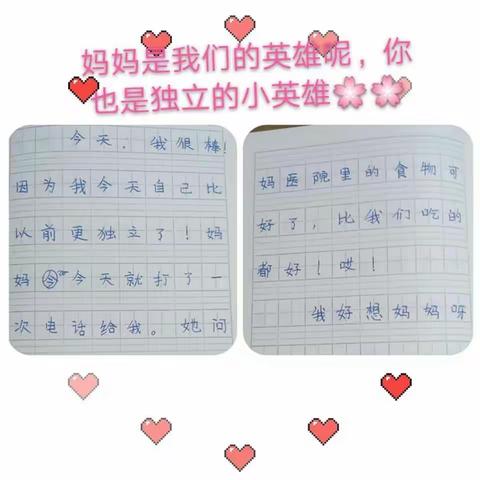 妈妈是我们的英雄呢，你
也是独立的小英雄🌸🌸
今天，我很棒！
因为我今天自己比
以前更独立了！妈
妈今天就打了一
次电话给我。她问
妈医院里的食物可
好了，比我们吃的
都好！哎！
我好想妈妈呀